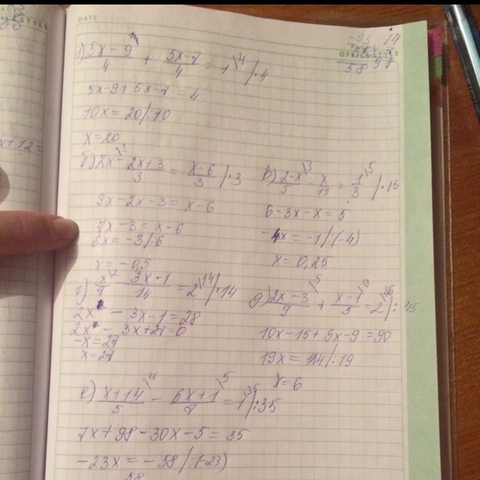 DATE
а) 5x-9/4 + 5x-7/4 = 1\4 |·4
5x-9+5x-7=4
10x=20 |:10
x=20
б) 2x\3 - 2x+3/3 = x-6/3 |·3
9x-2x-3=x-6
7x-3=x-6
6x=-3 |:6
x=-0,5
в) 2-x\3/5 - x/15 = 1\5/3 |·15
6-3x-x=5
-4x=-1 |(-4)
x=0,25
г) x\2/7 - 3x-1/14 = 2\14 |·14
2x - 3x-1=28
2x - 3x+21=0
-x=27
x=27
д) 2x-3\5/9 + x-1\9/5 = 2\45 |:45
10x-15+9x-9=90
19x=114 |:19
x=6
е) x+14\7/5 - 6x+1\5/7 = 1\35 |:35
7x+98-30x-5=35
-23x=-58 |(-23)
58
x+12=